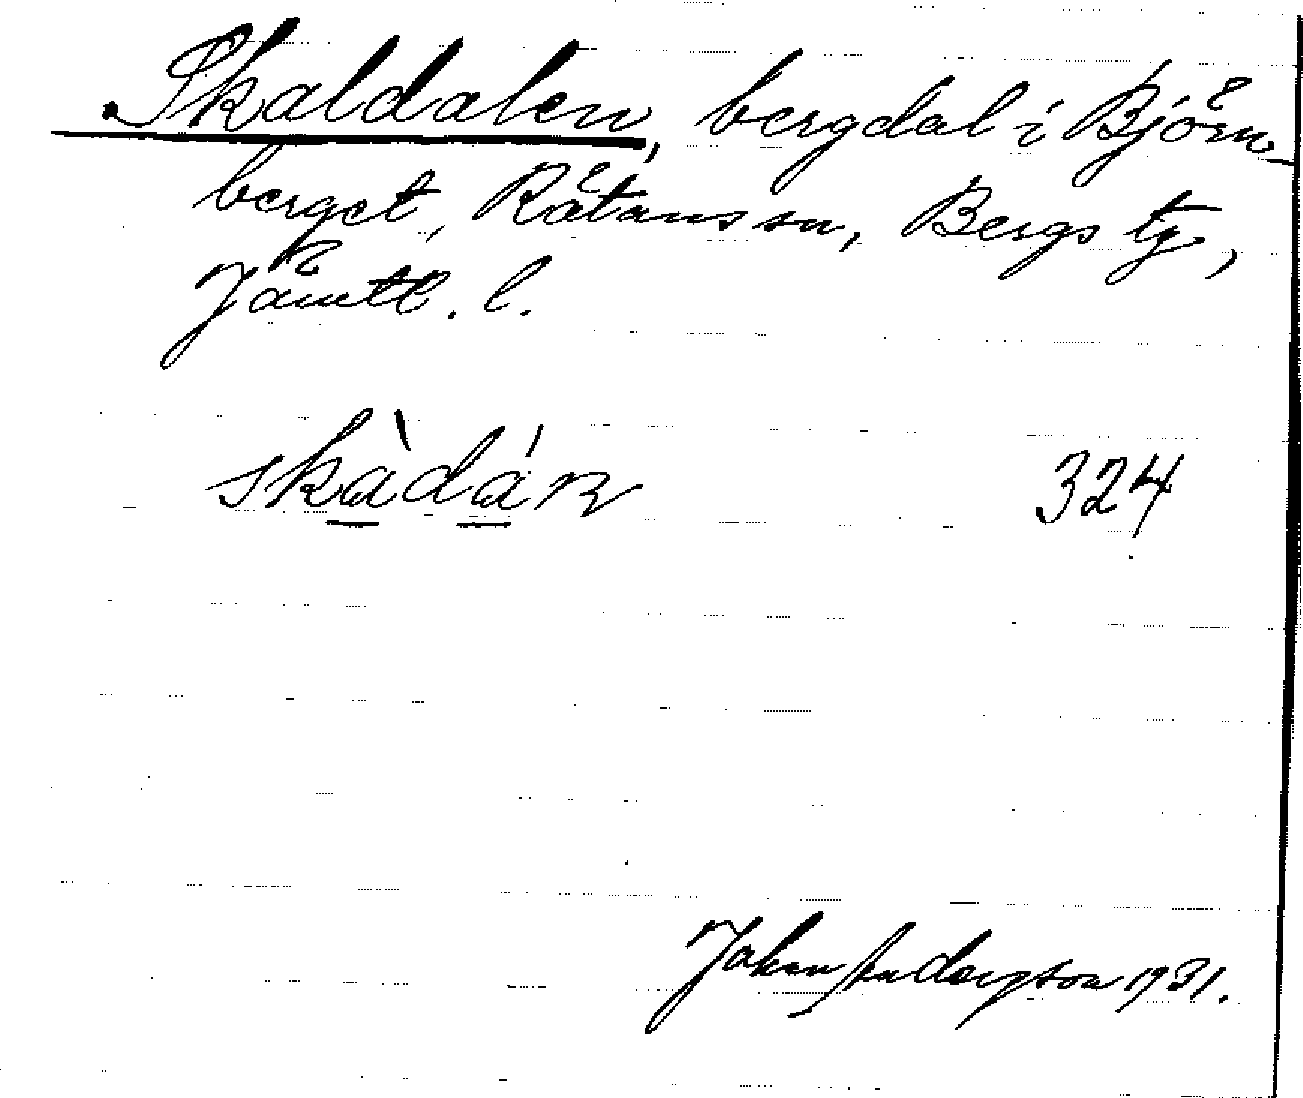 Skaldalen, bergdal i Björn-
berget, Rätans sn, Bergs tg,
Jämtl. l.
skàdáṉ 324
Johan Anderzson 1931.